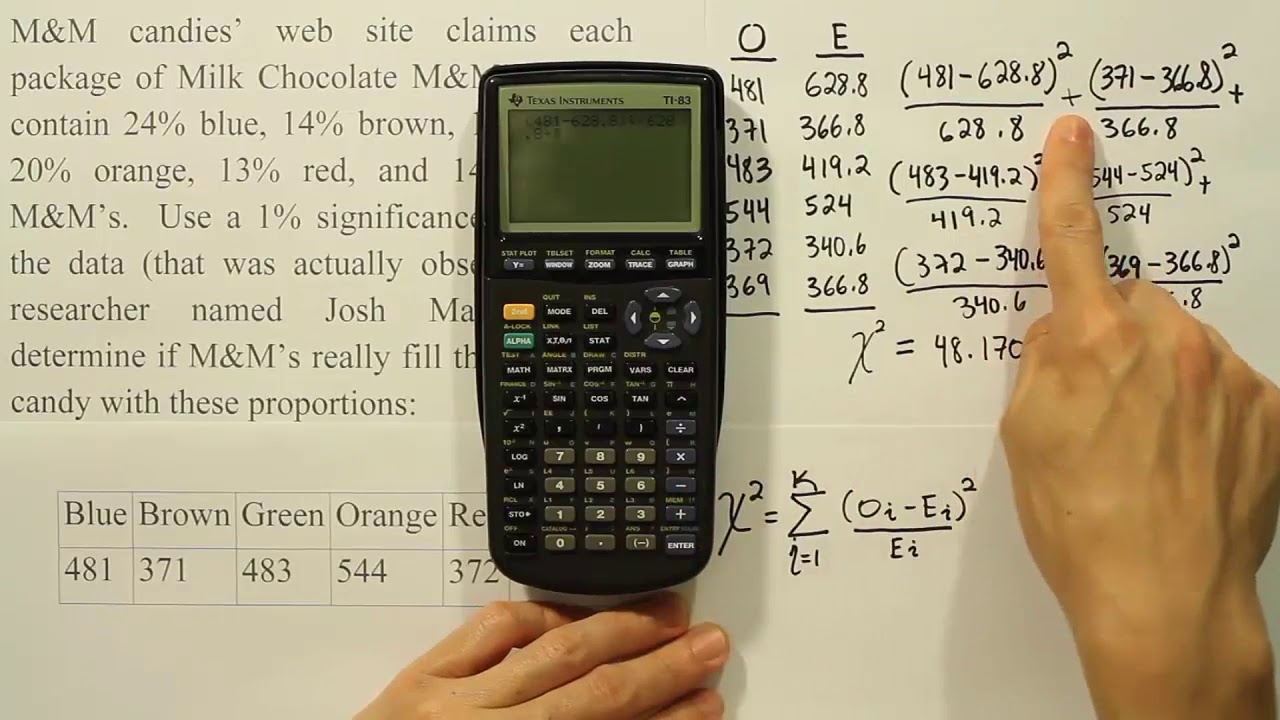 M&M candies' web site claims each
package of Milk Chocolate
contain 24% blue, 14% brown,
20% orange, 13% red, and
M&M's. Use a 1% significance
the data (that was actually
researcher named Josh
determine if M&M's really fill
candy with these proportions:
Blue Brown Green Orange
481 371 483 544 372
TEXAS INSTRUMENTS TI-83
(481-628.8)²/628
.8+
STAT PLOT TBLSET FORMAT CALC TABLE
Y= WINDOW ZOOM TRACE GRAPH
QUIT INS
2nd MODE DEL
A-LOCK LINK LIST
ALPHA X,T,θ,n STAT
TEST A ANGLE B DRAW C DISTR
MATH MATRX PRGM VARS CLEAR
FINANCE D SIN⁻¹ E COS⁻¹ F TAN⁻¹ G π H
x⁻¹ SIN COS TAN ^
x² , ( ) ÷
LOG 7 8 9 ×
LN 4 5 6 −
RCL L1 L2 L3 MEM
STO▸ 1 2 3 +
OFF CATALOG ANS ENTRY SOLVE
ON 0 . (−) ENTER
O E
481 628.8
371 366.8
483 419.2
544 524
372 340.6
369 366.8
(481-628.8)²/628.8 + (371-366.8)²/366.8 +
(483-419.2)²/419.2 544-524)²/524 +
(372-340.6/340.6 369-366.8)²/.8
χ² = 48.170
χ² = Σ K i=1 (Oi-Ei)²/Ei